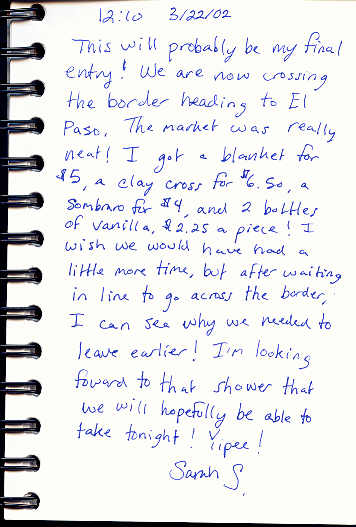 12:10 3/22/02
This will probably be my final
entry! We are now crossing
the border heading to El
Paso. The market was really
neat! I got a blanket for
$5, a clay cross for $6.50, a
Sombraro for $4, and 2 bottles
of vanilla, $2.25 a piece! I
wish we would have had a
little more time, but after waiting
in line to go across the border,
I can see why we needed to
leave earlier! I'm looking
foward to that shower that
we will hopefully be able to
take tonight! Yipee!
Sarah S.